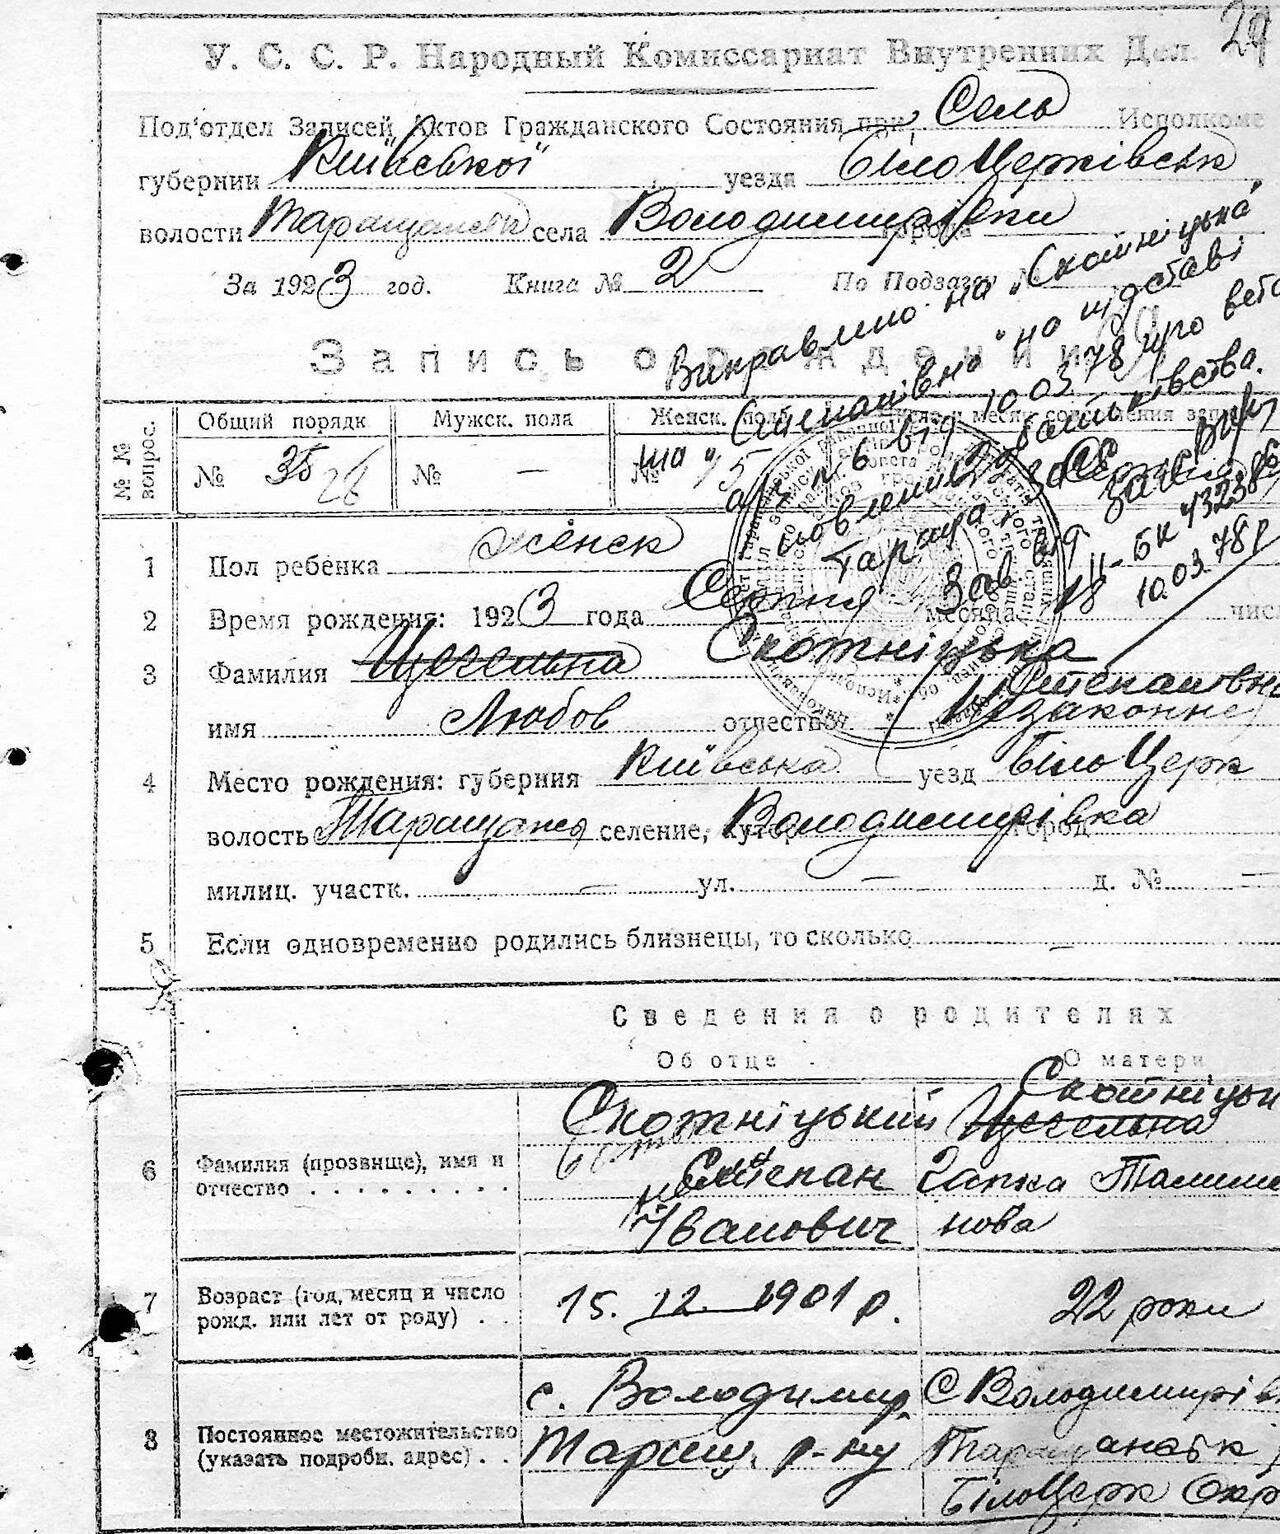 29
У. С. С. Р. Народный Комиссариат Внутренних Дел.
Под'отдел Записей Актов Гражданского Состояния при Сель Исполкоме
губернии Київської уезда БілоЦерківськ
волости Таращанськ села Володимирівки города
За 1923 год. Книга № 2 По Подзагу №
Виправлено на „Скотніцька
Степанівна" на підставі
а/з № 6 від 10.03.78 про вста
новлення батьківства.
Запись о рождении
№№ вопрос. Общий порядк Мужск. пола Женск. пола
№ 35 26 № — № 15
II-БК 432386
10.03.78р
1 Пол ребенка женск
2 Время рождения: 1923 года Серпня месяца 18 числ
3 Фамилия Щегельна Скотніцька
Степановна
имя Любов отчество Незаконне
4 Место рождения: губерния Київська уезд БілоЦерк
волость Таращанськ селение, хутор Володимирівка город
милиц. участк. — ул. — д. № —
5 Если одновременно родились близнецы, то сколько —
Сведения о родителях
Об отце О матери
6 Фамилия (прозвище), имя и отчество
Скотніцький
Степан
Іванович
Скотніцьк
Щегельна
Гапка
нова
7 Возраст (год, месяц и число рожд. или лет от роду) 15. 12. 1901 р. 22 роки
8 Постоянное местожительство (указать подробн. адрес)
с. Володимир.
Таращ. р-ну
С Володимирів
Таращанськ
БілоЦерк Окр